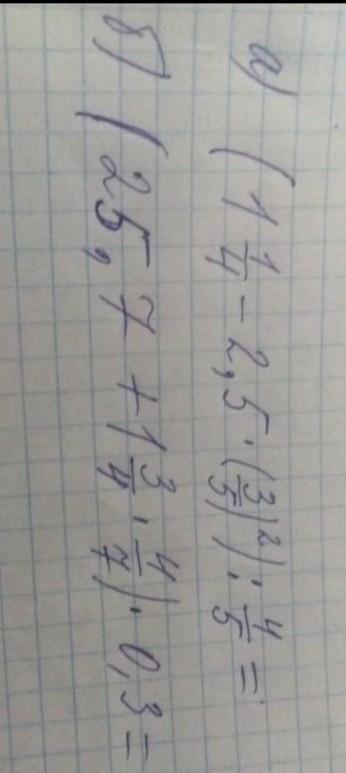 а) (1 1/4 - 2,5 · (3/5)²) : 4/5 =
б) (25,7 + 1 3/4 · 4/7) · 0,3 =